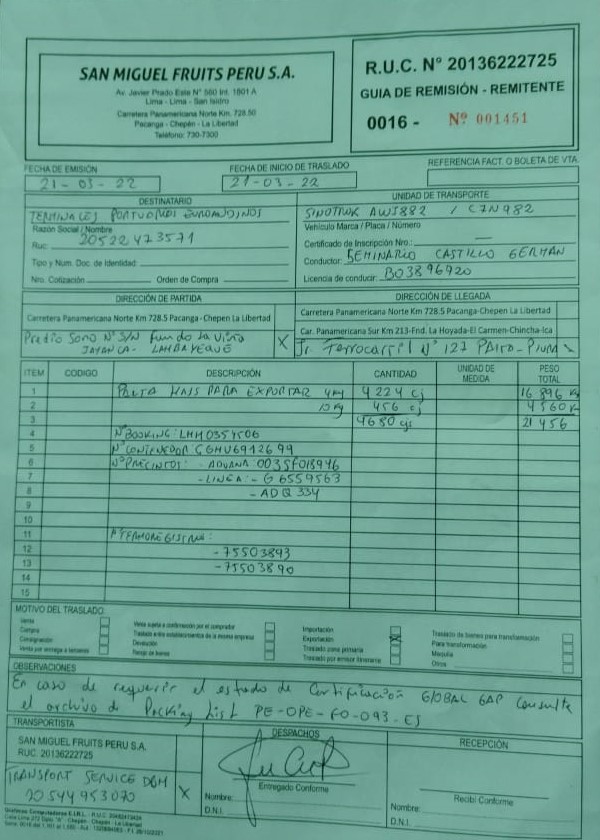 SAN MIGUEL FRUITS PERU S.A.
Av. Javier Prado Este N° 560 Int. 1601 A
Lima - Lima - San Isidro
Carretera Panamericana Norte Km. 728.50
Pacanga - Chepén - La Libertad
Teléfono: 730-7300
R.U.C. N° 20136222725
GUIA DE REMISIÓN - REMITENTE
0016 - Nº 001451
FECHA DE EMISIÓN
21-03-22
FECHA DE INICIO DE TRASLADO
21-03-22
REFERENCIA FACT. O BOLETA DE VTA.
DESTINATARIO
PORTUARIOS EUROANDINOS
Razón Social / Nombre
Ruc: 20522473571
Tipo y Num. Doc. de Identidad:
Nro. Cotización: Orden de Compra:
UNIDAD DE TRANSPORTE
SINOTRUK AWJ882 / C7N982
Vehículo Marca / Placa / Número
Certificado de Inscripción Nro.: —
Conductor: SEMINARIO CASTILLO GERMAN
Licencia de conducir: B03896920
DIRECCIÓN DE PARTIDA
Carretera Panamericana Norte Km 728.5 Pacanga-Chepen La Libertad
Predio Sono N° S/N Fundo La Viña
JAYANCA - LAMBAYEQUE X
DIRECCIÓN DE LLEGADA
Carretera Panamericana Norte Km 728.5 Pacanga-Chepen La Libertad
Car. Panamericana Sur Km 213-Fnd. La Hoyada-El Carmen-Chincha-Ica
Jr. Ferrocarril N° 127 PAITA-PIURA
ITEM CODIGO DESCRIPCIÓN CANTIDAD UNIDAD DE MEDIDA PESO TOTAL
1 PARA EXPORTAR 4kg 4224 cj 16 896 Kg
2 10 kg 456 cj 4560 K
3 4680 cjs 21 456
4 N°BOOKING: LMM0354506
5 N°CONTENEDOR SGMU6912699
6 N°PRECINTOS: - ADUANA
7 - LINEA: - G6559563
8 - ADQ 334
9
10
11
12 - 75503893
13 - 75503890
14
15
MOTIVO DEL TRASLADO:
Venta
Compra
Consignación
Venta por entrega a terceros
Venta sujeta a confirmación por el comprador
Traslado e/tre establecimientos de la misma empresa
Devolución
Recojo de bienes
Importación
Exportación X
Traslado zona primaria
Traslado por emisor itinerante
Traslado de bienes para transformación
Para transformación
Maquila
Otros
OBSERVACIONES
En caso de requerir el estado de Certificación GLOBAL GAP consulte
el archivo de Packing List PE-OPE-FO-093-ES
TRANSPORTISTA
SAN MIGUEL FRUITS PERU S.A.
RUC. 20136222725
TRANSPORT SERVICE DGM
20544953070 X
DESPACHOS
Entregado Conforme
Nombre:
D.N.I.
RECEPCIÓN
Recibí Conforme
Nombre:
D.N.I.